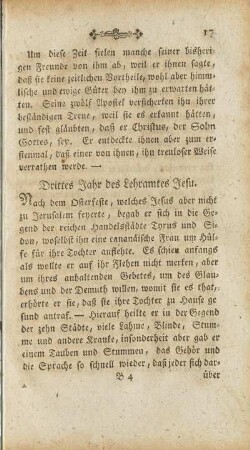 17
Um diese Zeit fielen manche seiner bisheri-
gen Freunde von ihm ab, weil er ihnen sagte,
daß sie keine zeitlichen Vortheile, wohl aber himm-
lische und ewige Güter bey ihm zu erwarten hätten.
Seine zwölf Apostel versicherten ihn ihrer
beständigen Treue, weil sie es erkannt hätten,
und fest glaubten, daß er Christus, der Sohn
Gottes, sey. Er entdeckte ihnen aber zum er-
stenmal, daß einer von ihnen, ihn treuloser Weise
verrathen werde. —
Drittes Jahr des Lehramtes Jesu.
Nach dem Osterfeste, welches Jesus aber nicht
zu Jerusalem feyerte, begab er sich in die Ge-
gend der reichen Handelsstädte Tyrus und Si-
don, woselbst ihn eine cananäische Frau um Hül-
fe für ihre Tochter anflehte. Es schien anfangs
als wollte er auf ihr Flehen nicht merken, aber
um ihres anhaltenden Gebetes, um des Glau-
bens und der Demuth willen, womit sie es that,
erhörte er sie, daß sie ihre Tochter zu Hause ge-
sund antraf. — Hierauf heilte er in der Gegend
der zehn Städte, viele Lahme, Blinde, Stum-
me und andere Kranke, insonderheit aber gab er
einem Tauben und Stummen, das Gehör und
die Sprache so schnell wieder, daß jeder sich dar-
B 4 über